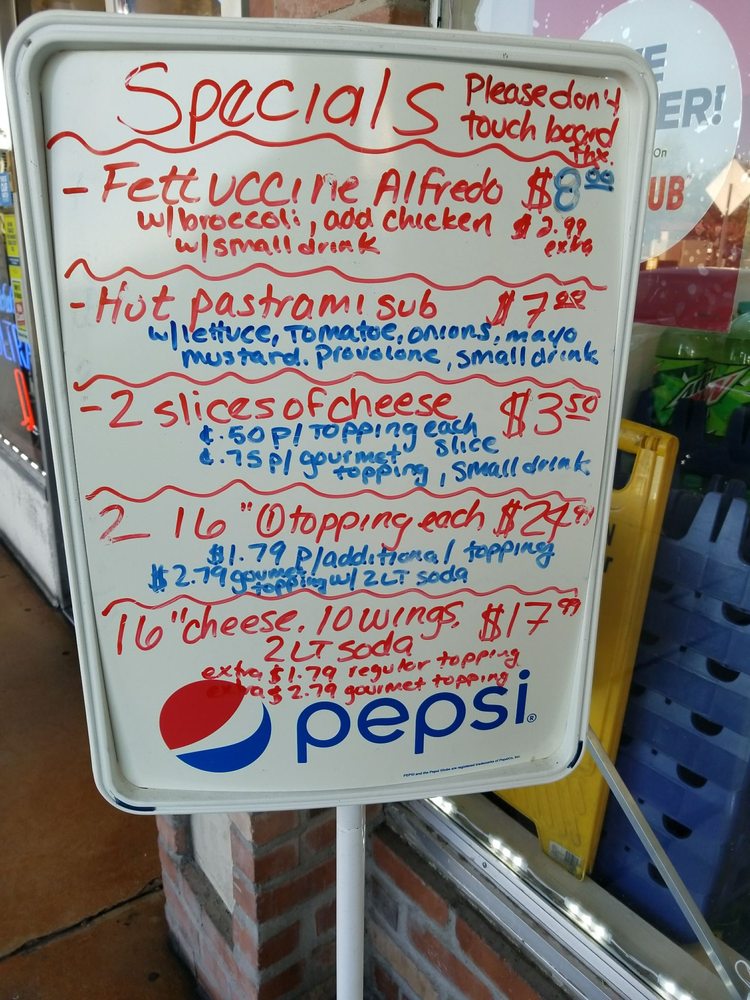 Specials
Please don't
touch board
thx.
- Fettuccine Alfredo $8.00
w/broccoli, add chicken $2.99
w/small drink extra
- Hot pastrami sub $7.00
w/lettuce, Tomatoe, onions, mayo
mustard. Provolone, small drink
- 2 slices of cheese $3.50
¢.50 p/ topping each
slice
¢.75 p/ gourmet
topping, small drink
2 16" ① topping each $24.99
$1.79 p/additional topping
$2.79 gourmet
topping w/ 2LT soda
16" cheese. 10 wings. $17.99
2 LT soda
extra $1.79 regular topping
extra $2.79 gourmet topping
pepsi®
ER!
On
UB